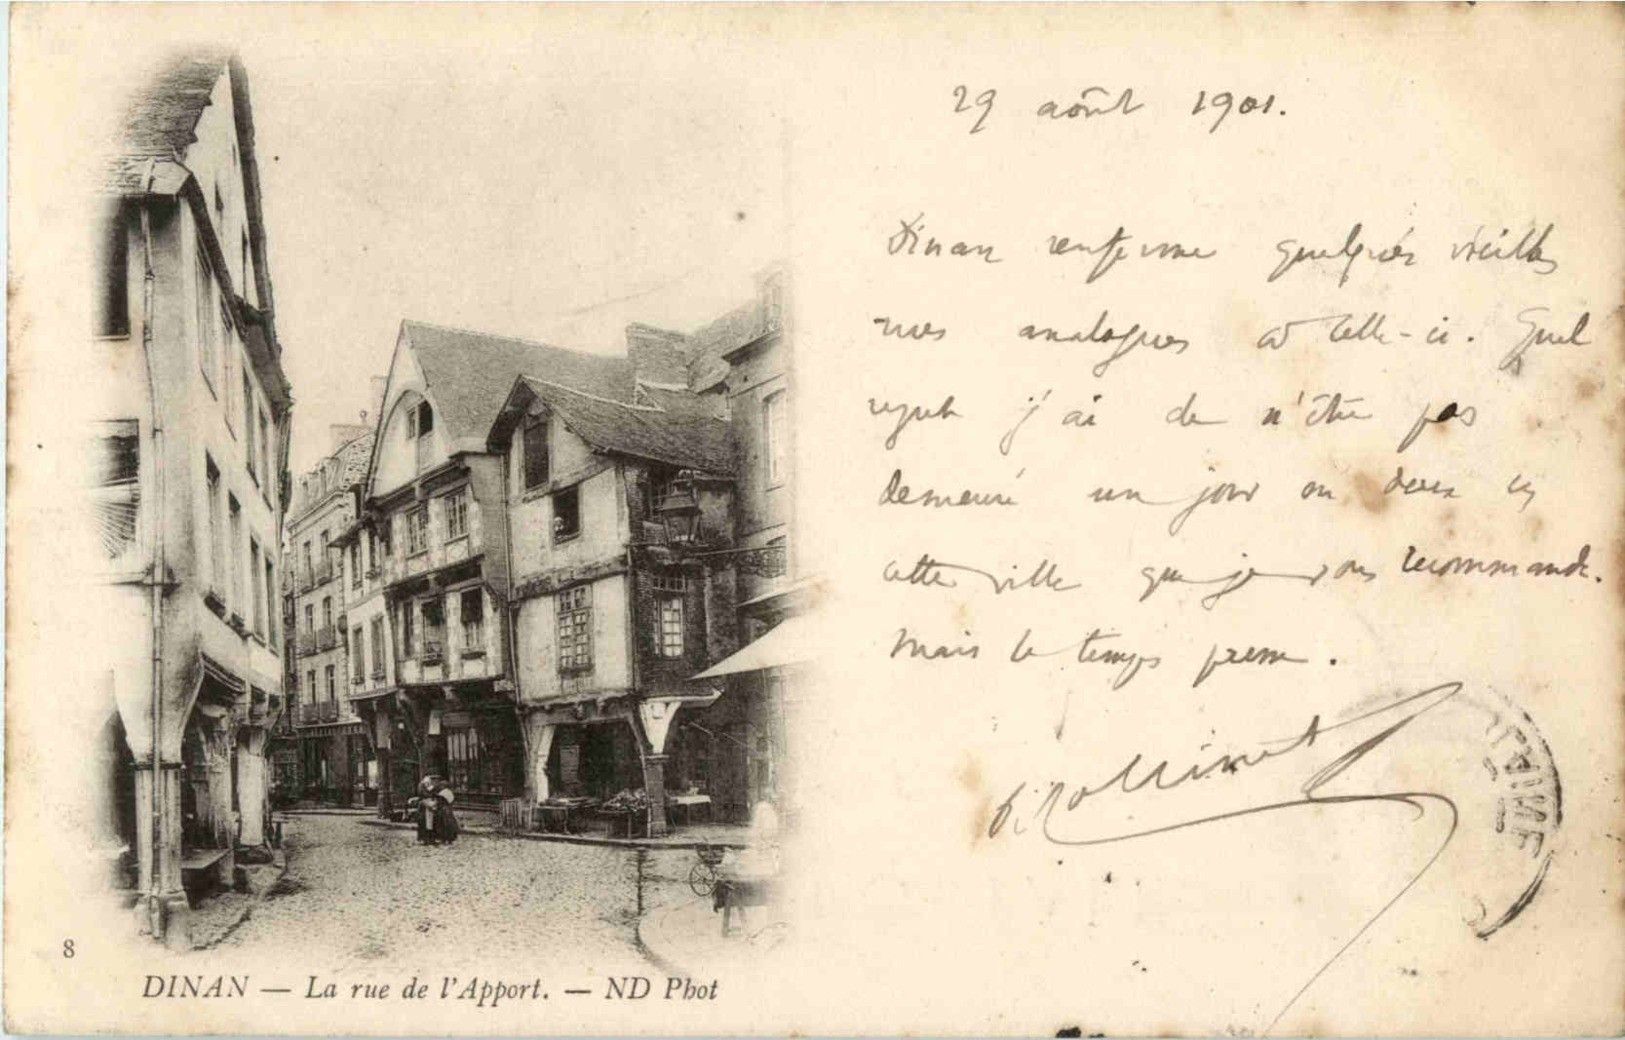 29 août 1901.
Dinan renferme quelques vieilles
rues analogues à celle-ci. Quel
regret j'ai de n'être pas
demeuré un jour ou deux en
cette ville que je vous recommande.
Mais le temps presse.
8
DINAN — La rue de l'Apport. — ND Phot